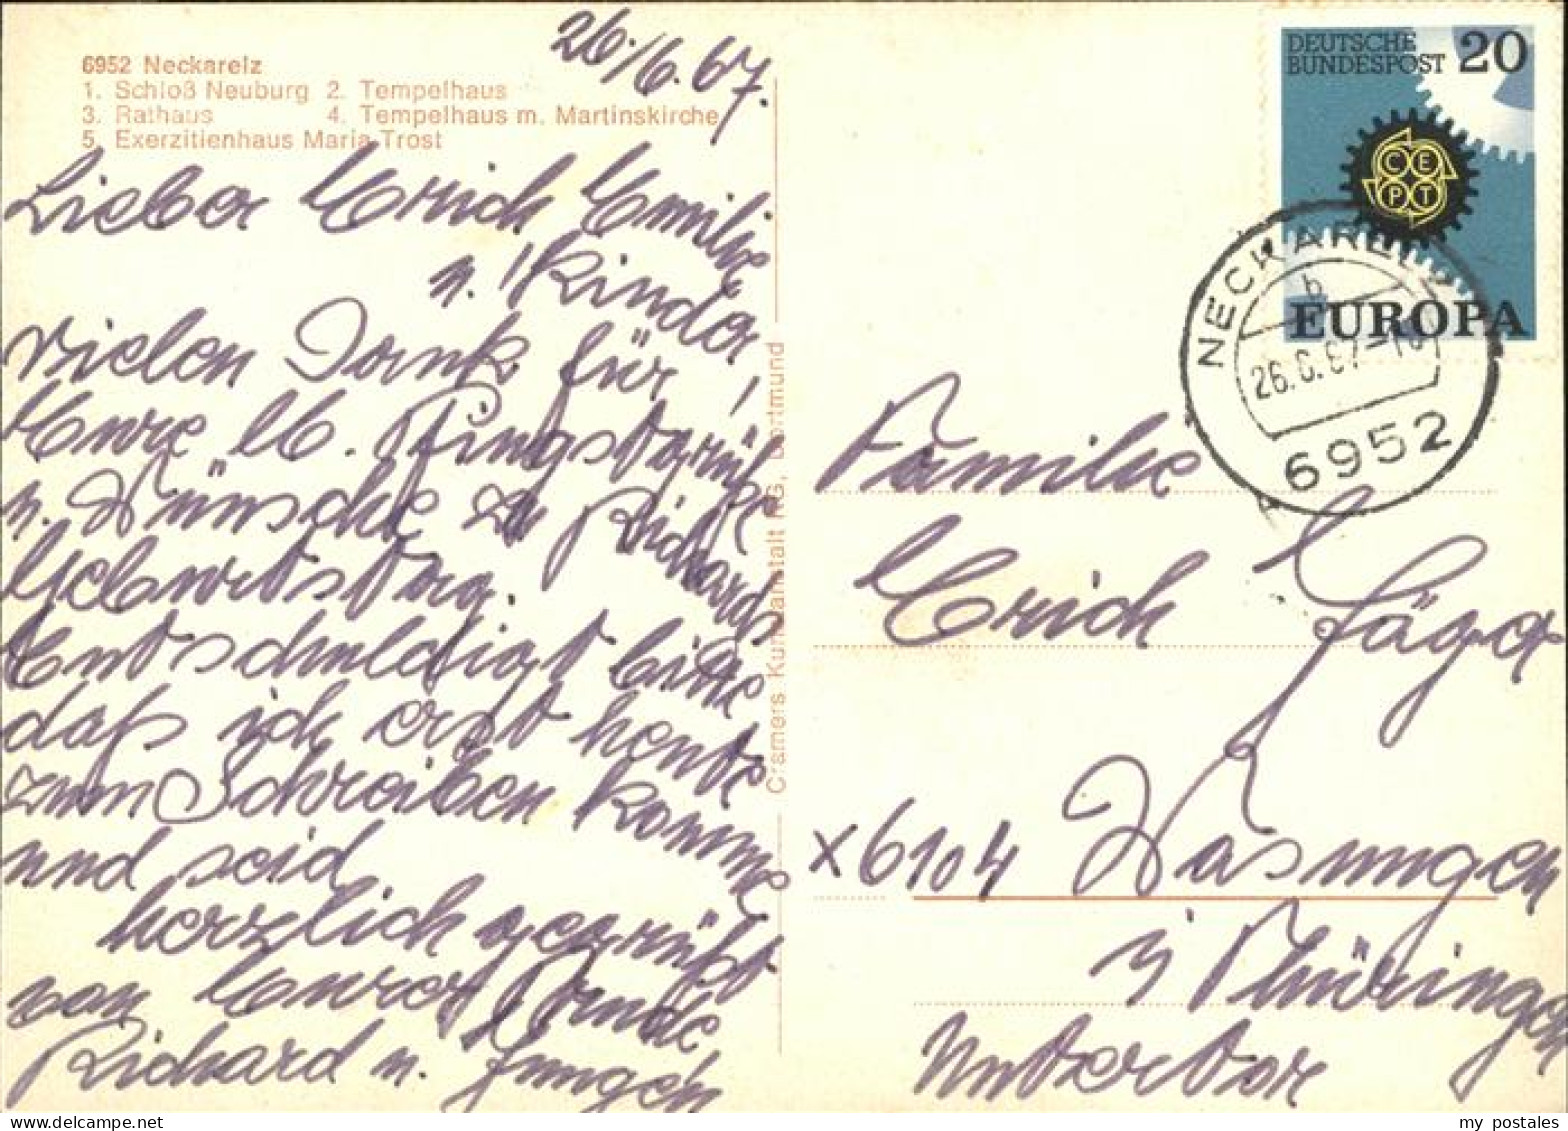 26./6.67.
6952 Neckarelz
1. Schloß Neuburg 2. Tempelhaus
3. Rathaus 4. Tempelhaus m. Martinskirche
5. Exerzitienhaus Maria Trost
Lieber Erich Emilie
u. Kinder,
Vielen Dank für
Eure lb. Pfingstgrüße
u. Wünsche zu Richards
Geburtstag.
Entschuldigt bitte
daß ich erst heute
zum Schreiben komme
und seid
herzlich gegrüßt
von Eurer
Richard u. Jungen
Cramers Kunstanstalt KG, Dortmund
DEUTSCHE
BUNDESPOST 20
CEPT
EUROPA
NECKARELZ
b
26.6.67-10
6952
Familie
Erich Jäger
x6104 Wasungen
i/ Thüringen
Untertor
my postales